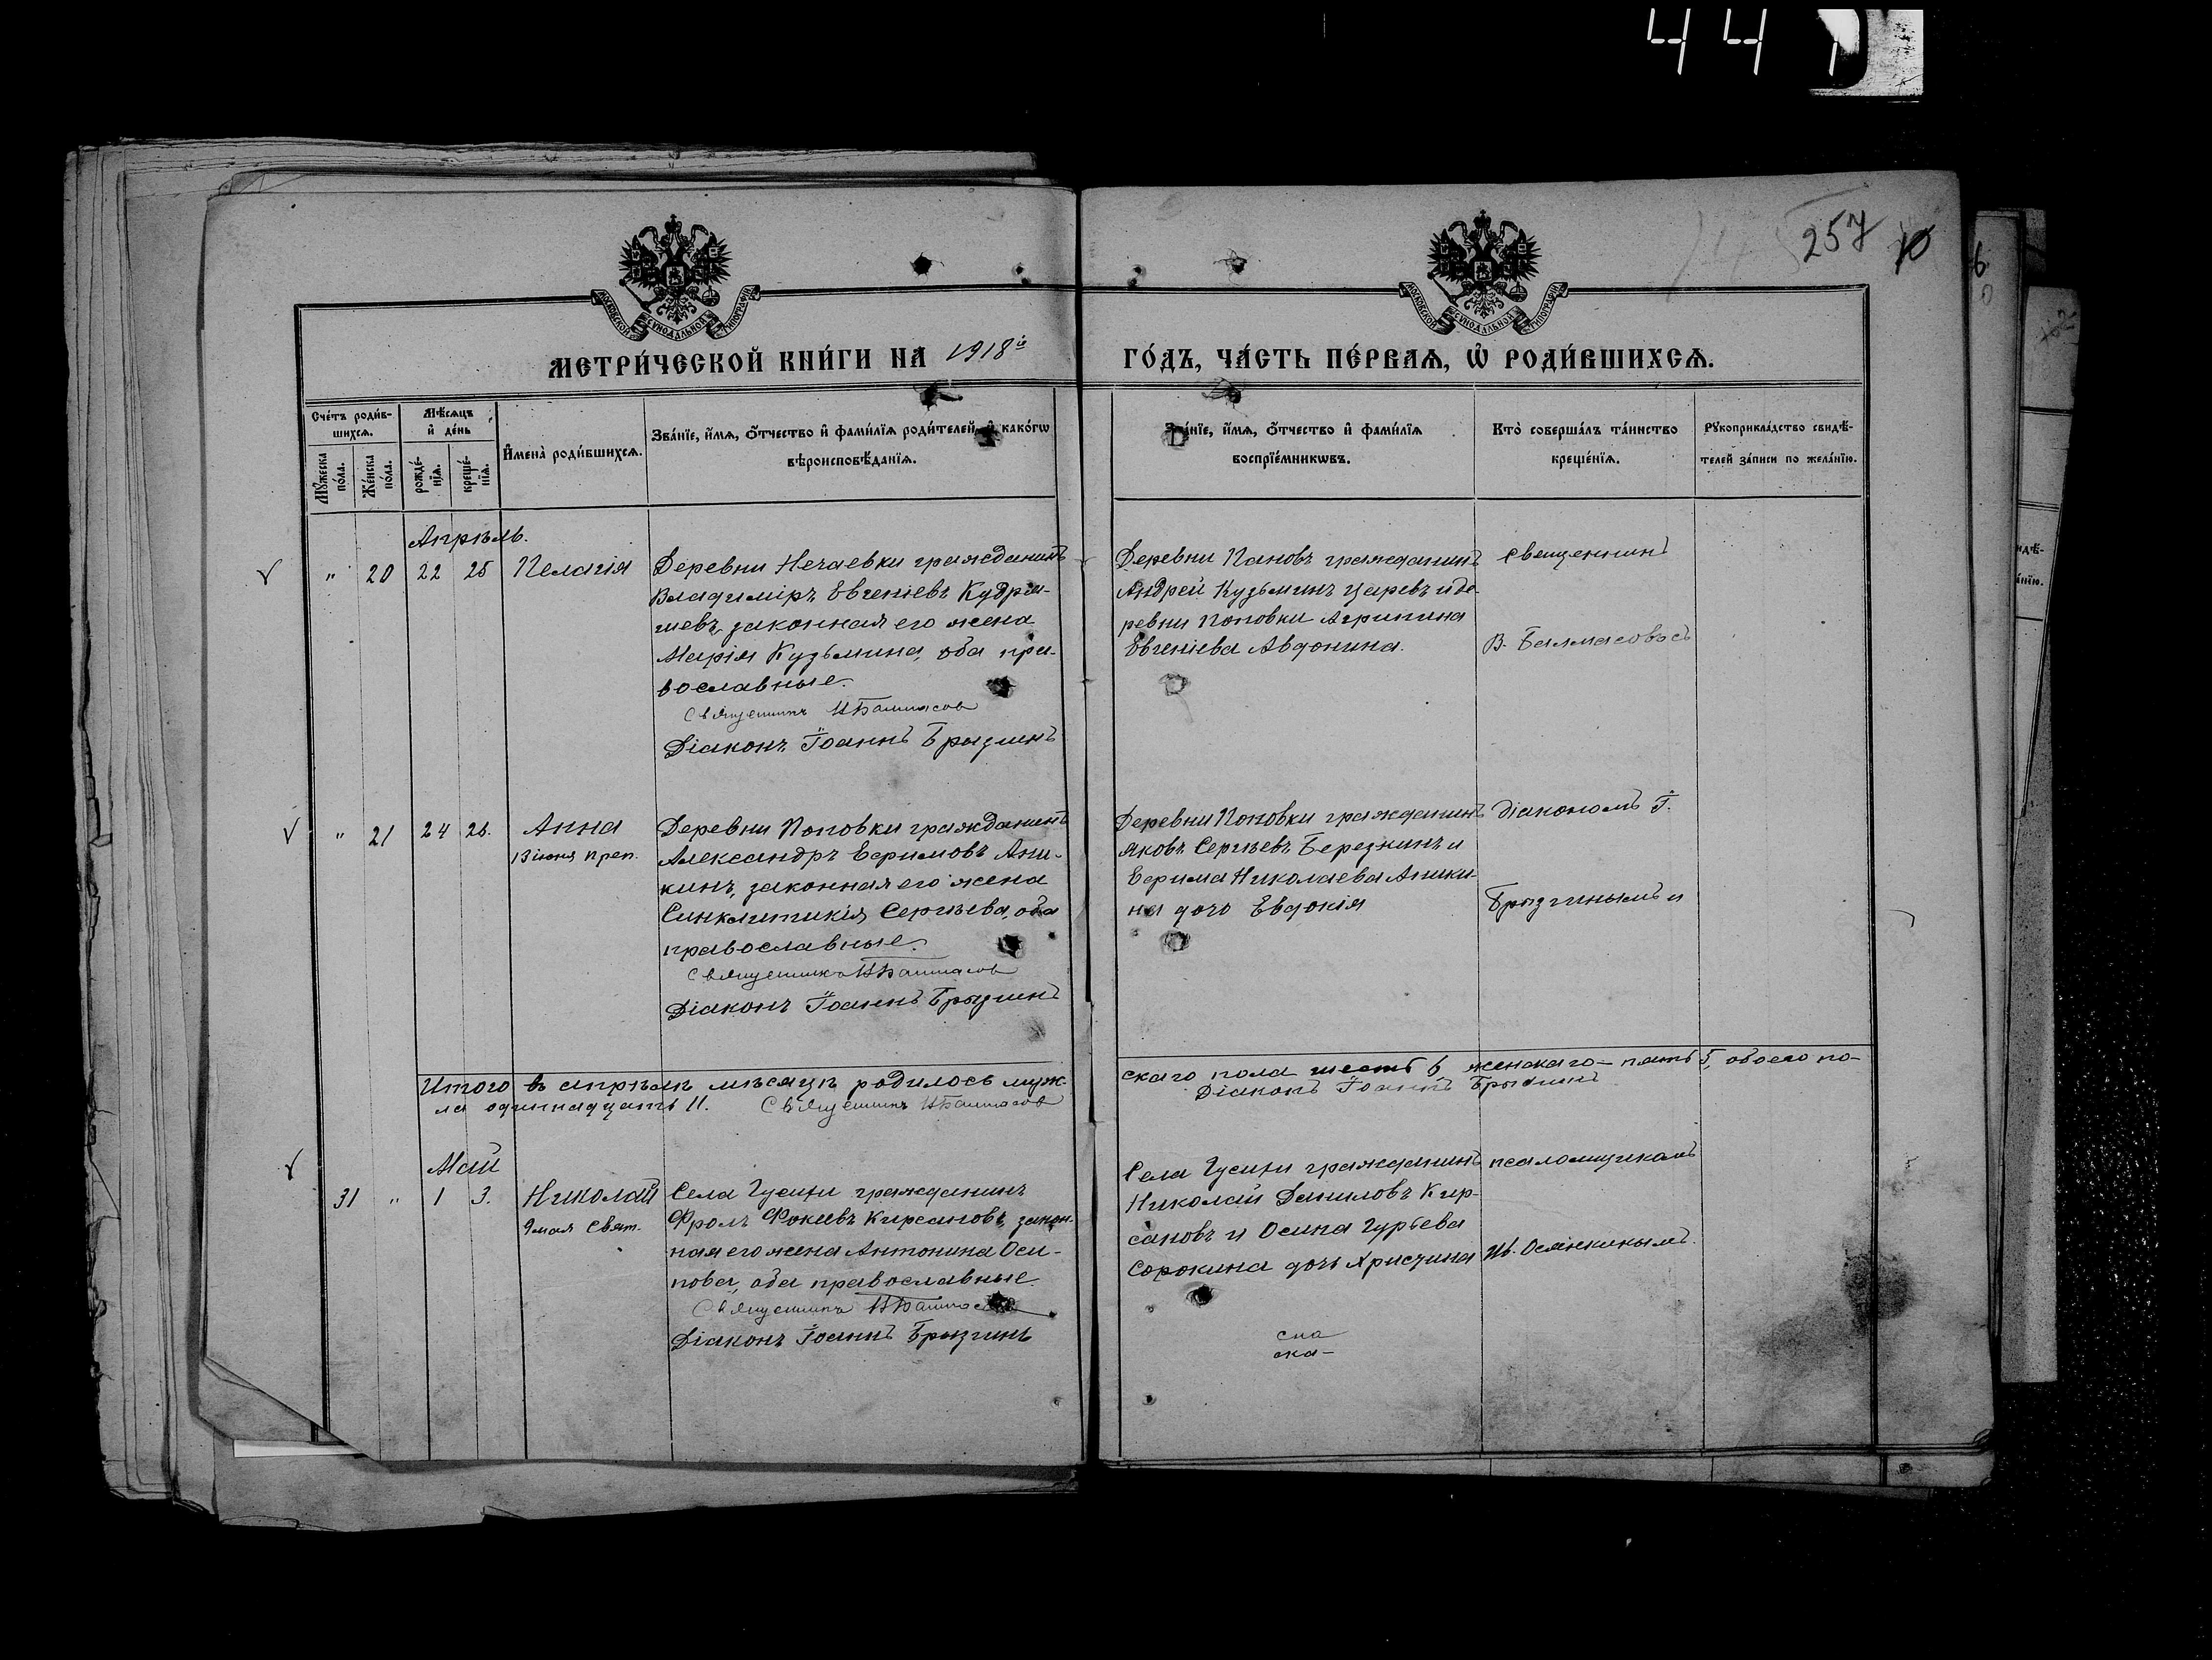 257 10
МЕТРИ́ЧЕСКОЙ КНИ́ГИ НА 1918й ГО́ДЪ, ЧА́СТЬ ПЕ́РВАѦ, Ѡ҆ РОДИ́ВШИХСѦ.
Сче́тъ роди́в-
шихсѧ.
Мꙋ́жеска по́ла.
Же́нска по́ла.
Мѣ́сѧцъ
и҆ де́нь
рожде́-нїѧ.
креще́-нїѧ.
И҆мена̀ роди́вшихсѧ.
Зва́нїе, и҆́мѧ, ѻ҆́тчество и҆ фами́лїѧ роди́телей, и҆ како́гѡ
вѣроисповѣ́данїѧ.
Зва́нїе, и҆́мѧ, ѻ҆́тчество и҆ фами́лїѧ
воспрїе́мникѡвъ.
Кто̀ соверша́лъ та́инство
креще́нїѧ.
Рꙋкоприкла́дство свидѣ́-
телей за́писи по жела́нїю.
Апрѣль.
" 20 22 25 Пелагія
Деревни Нечаевки гражданинъ
Владиміръ Евгеніевъ Кудря-
шевъ, законная его жена
Марія Кузьмина, оба пра-
вославные.
Священникъ Балмасов
Діаконъ Іоаннъ Брызгинъ
Деревни Пановъ гражданинъ
Андрей Кузьминъ Царевъ и де-
ревни Поповки Агрипина
Евгеніева Авдонина.
Священникъ
В. Балмасовъ съ
" 21 24 26. Анна
13 іюня Преп.
Деревни Поповки гражданинъ
Александръ Ефимовъ Ани-
кинъ, законная его жена
Синклитикія Сергѣева, оба
православные.
Священникъ Балмасов
Діаконъ Іоаннъ Брызгинъ
Деревни Поповки гражданинъ
Яковъ Сергѣевъ Березкинъ и
Ефима Николаева Аники-
на дочь Евдокія
Діакономъ І.
Брызгинымъ и
Итого въ апрѣлѣ мѣсяцѣ родилось муж-
скаго пола шесть 6, женскаго – пять 5, обоего по-
ла одиннадцать 11. Священникъ Балмасов
Діаконъ Іоаннъ Брызгинъ
Май
31 " 1 3. Николай
9 мая Свят.
Села Гусихи гражданинъ
Фролъ Фокеевъ Кирсановъ, закон-
ная его жена Антонина Оси-
пова, оба православные.
Священникъ Балмасов
Діаконъ Іоаннъ Брызгинъ
Села Гусихи гражданинъ
Николай Даниловъ Кир-
сановъ и Осипа Гурьева
Сорокина дочь Христина
псаломщикомъ
Ив. Осянкинымъ.
ска-